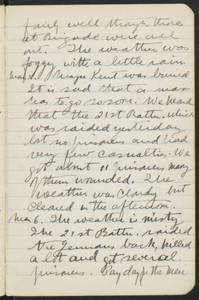 fairly well though those
at Brigade were all
out. The weather was
foggy with a little rain.
Major Kent was buried
It is sad that a man
has to go so soon. We heard
that the 21st Battn. which
was raided yesterday
lost no prisoners and had
very few casualties. We
got about 11 prisoners many
of them wounded. The
weather was cloudy but
cleared in the afternoon.
6. The weather is misty
The 21st Battn. raided
the Germans back, killed
a lot and got several
prisoners. the men